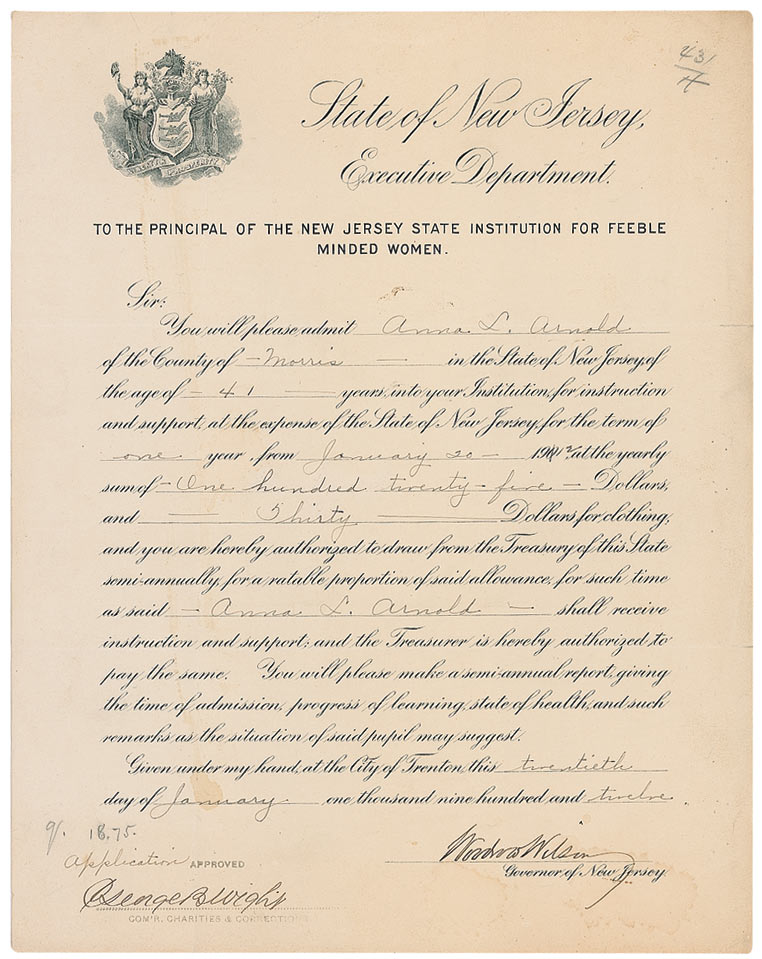 431
4
LIBERTY & PROSPERITY
State of New Jersey,
Executive Department.
TO THE PRINCIPAL OF THE NEW JERSEY STATE INSTITUTION FOR FEEBLE
MINDED WOMEN.
Sir:
You will please admit Anna L. Arnold
of the County of — Morris — in the State of New Jersey, of
the age of — 41 — years, into your Institution, for instruction
and support, at the expense of the State of New Jersey, for the term of
one year, from January 20 — 1912, at the yearly
sum of — One hundred twenty-five — Dollars,
and — Thirty — Dollars for clothing,
and you are hereby authorized to draw from the Treasury of this State
semi-annually, for a ratable proportion of said allowance, for such time
as said — Anna L. Arnold — shall receive
instruction and support; and the Treasurer is hereby authorized to
pay the same. You will please make a semi-annual report, giving
the time of admission, progress of learning, state of health, and such
remarks as the situation of said pupil may suggest.
Given under my hand, at the City of Trenton, this twentieth
day of January one thousand nine hundred and twelve.
18.75.
Application APPROVED
Woodrow Wilson
Governor of New Jersey.
George B. Wight
COM'R. CHARITIES & CORRECTIONS